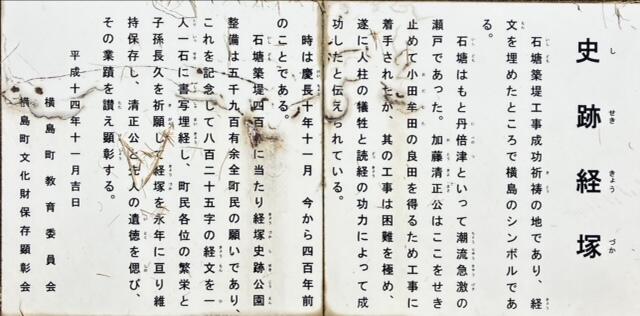 史跡経塚
しせききょうづか
石塘築堤工事成功祈祷の地であり、経
文を埋めたところで横島のシンボルであ
る。
石塘はもと丹倍津といって潮流急激の
瀬戸であった。加藤清正公はここをせき
止めて小田牟田の良田を得るため工事に
着手されたが、其の工事は困難を極め、
遂に人柱の犠牲と読経の功力によって成
功したと伝えられている。
時は慶長十年十一月 今から四百年前
のことである。
石塘築堤四百年に当たり経塚史跡公園
整備は五千九百有余全町民の願いであり、
これを記念して八百二十五字の経文を一
人一石に書写埋経し、町民各位の繁栄と
子孫長久を祈願して経塚を永年に亘り維
持保存し、清正公と先人の遺徳を偲び、
その業蹟を讃え顕彰する。
平成十四年十一月吉日
横島町教育委員会
横島町文化財保存顕彰会